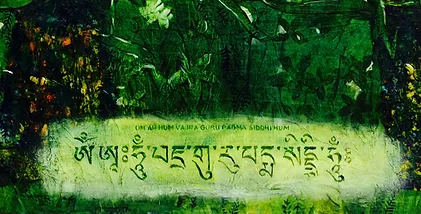 OM AH HUM VAJRA GURU PADMA SIDDHI HUM
ཨོཾ་ཨཱཿཧཱུྃ་བཛྲ་གུ་རུ་པདྨ་སིདྡྷི་ཧཱུྃ༔